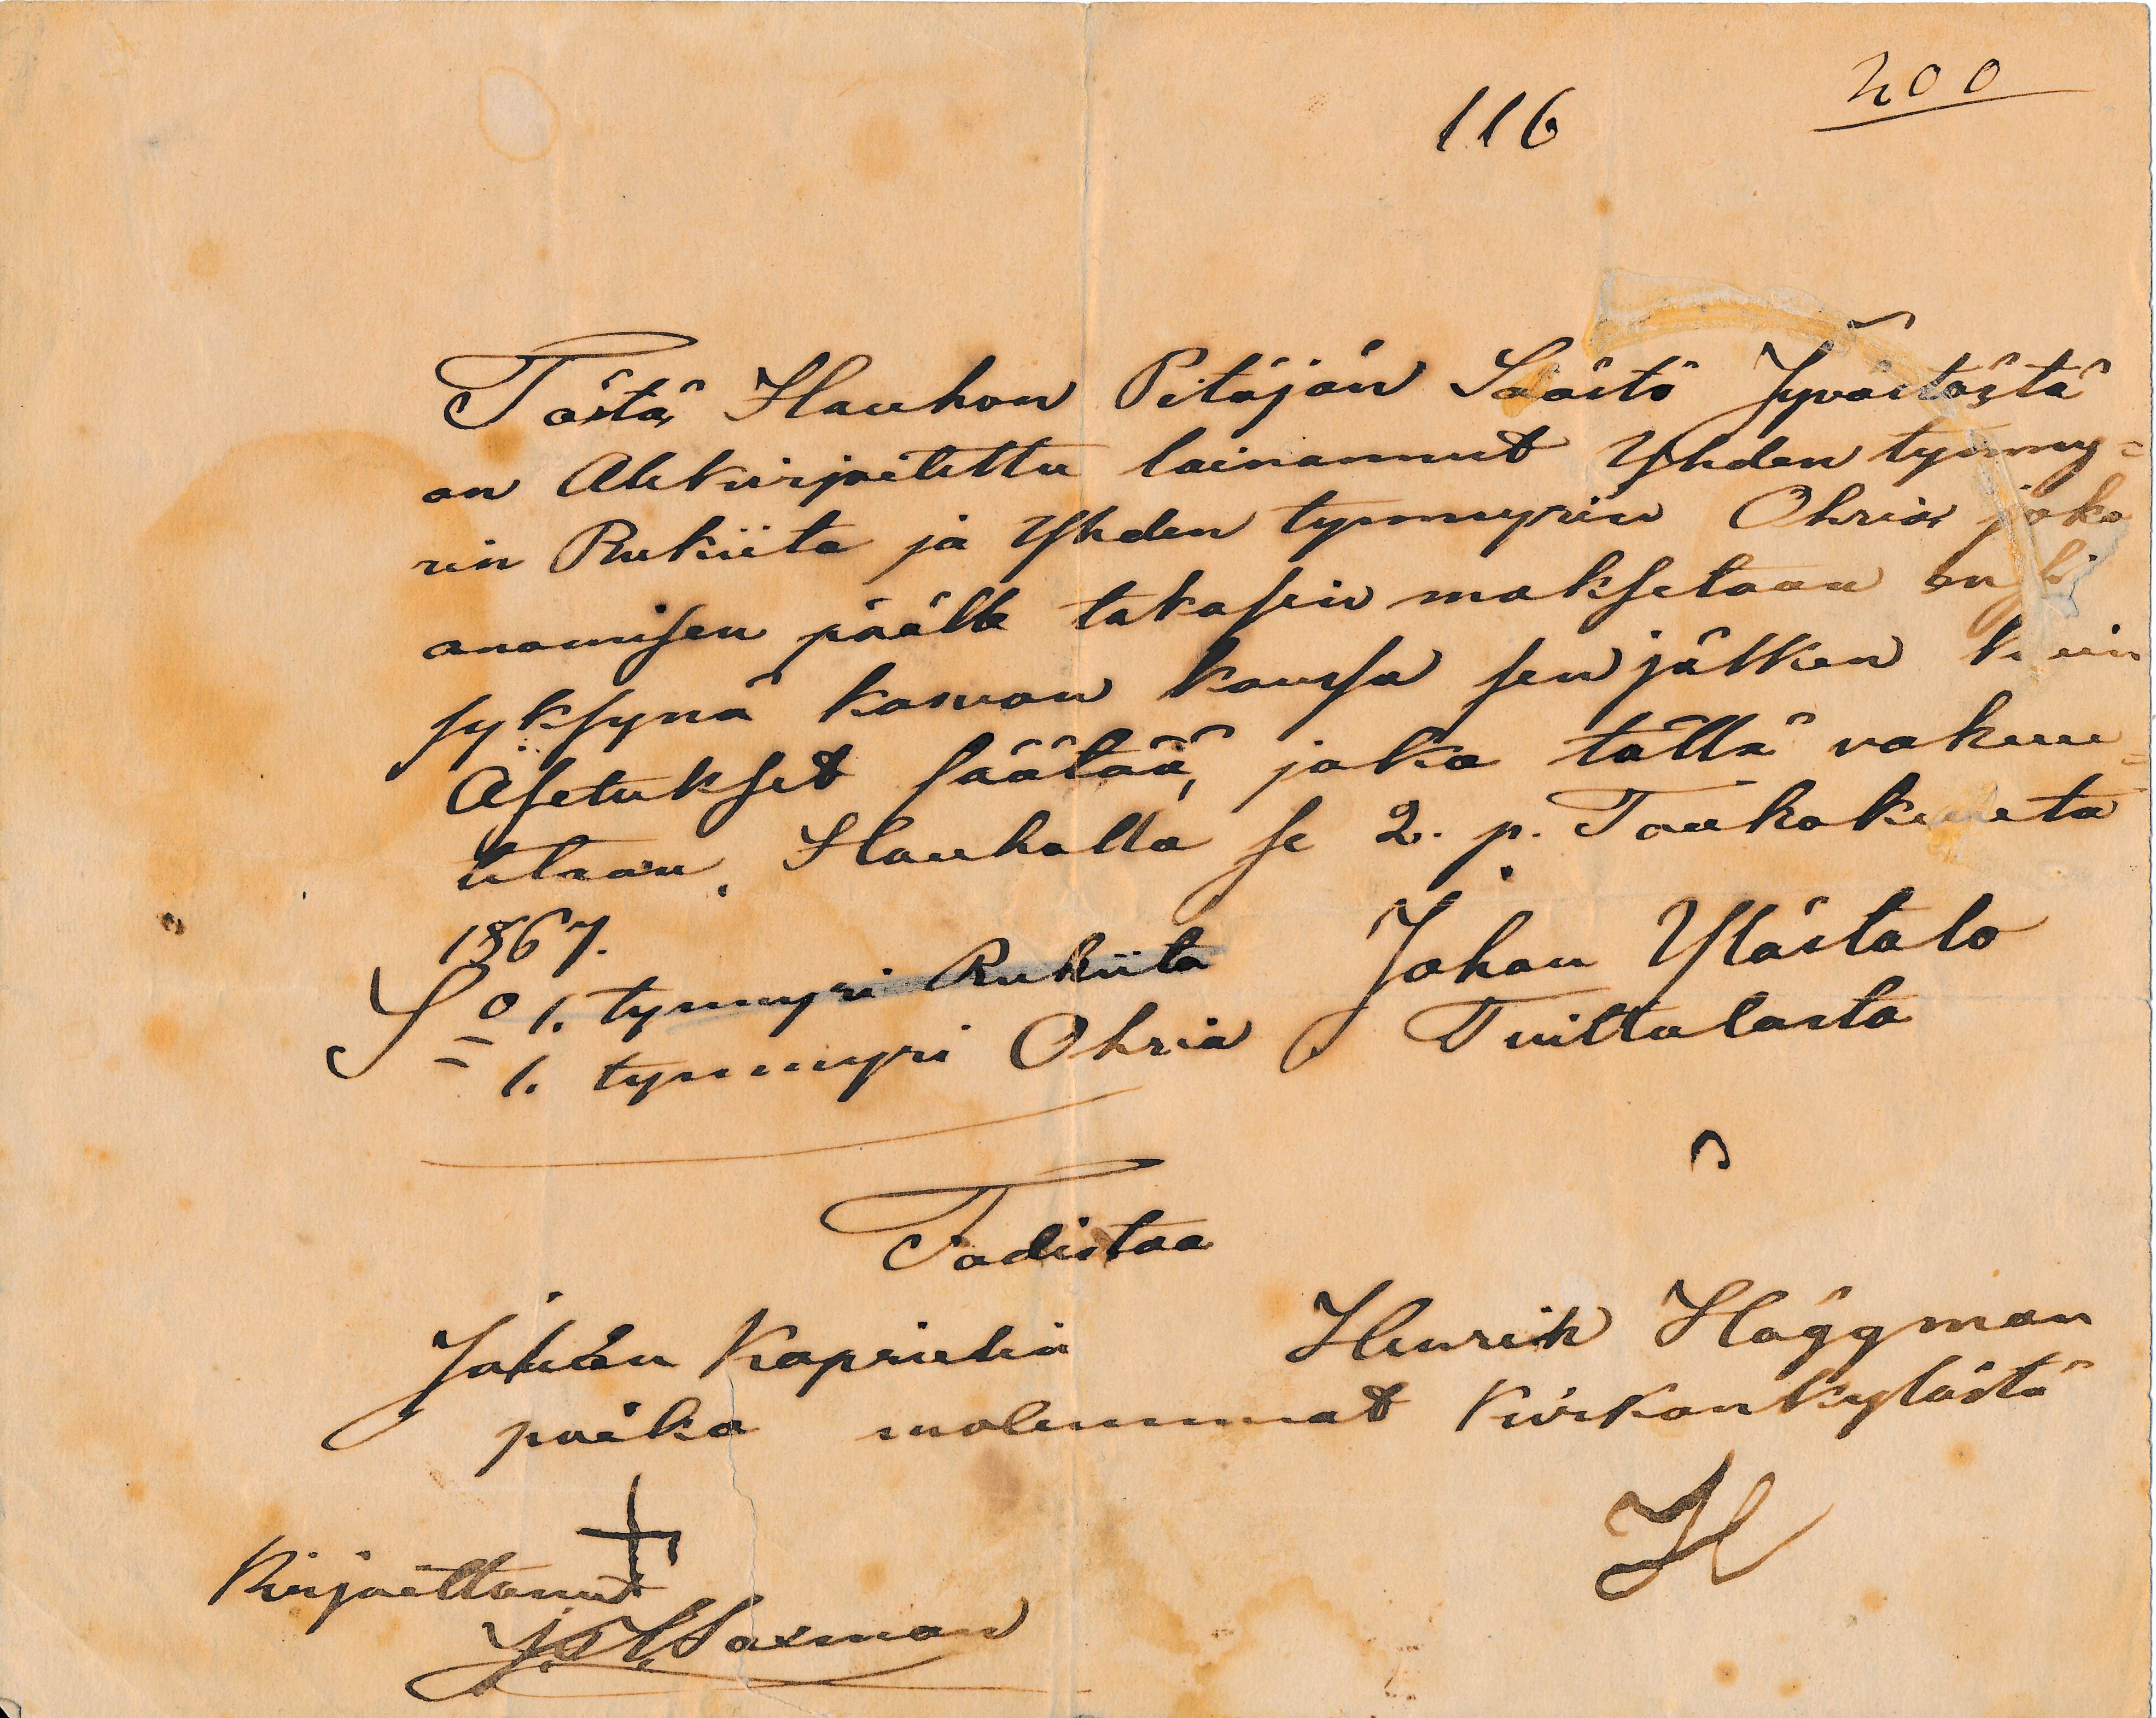 116
200
Tästä Hauhon Pitäjän Säästö Jyvästöstä
on Alekirjoitettu lainannut Yhden tynny=
rin Rukiita ja Yhden tynnyrin Ohria joka
anomisen päälle takasin maksetaan
syksynä kasvon kanssa sen jälken kuin
Asetukset säätää, joka tällä vakuu=
tetaan. Hauholla se 2. p. Toukokuuta
1867.
S o 1. tynnyri Rukiita Johan Yläistalo
= 1. tynnyri Ohria Tuittulasta
Todistaa
Johan Kaprielin Henrik Häggman
poika molemmat Kirkonkylästä
H
Kirjoittanut